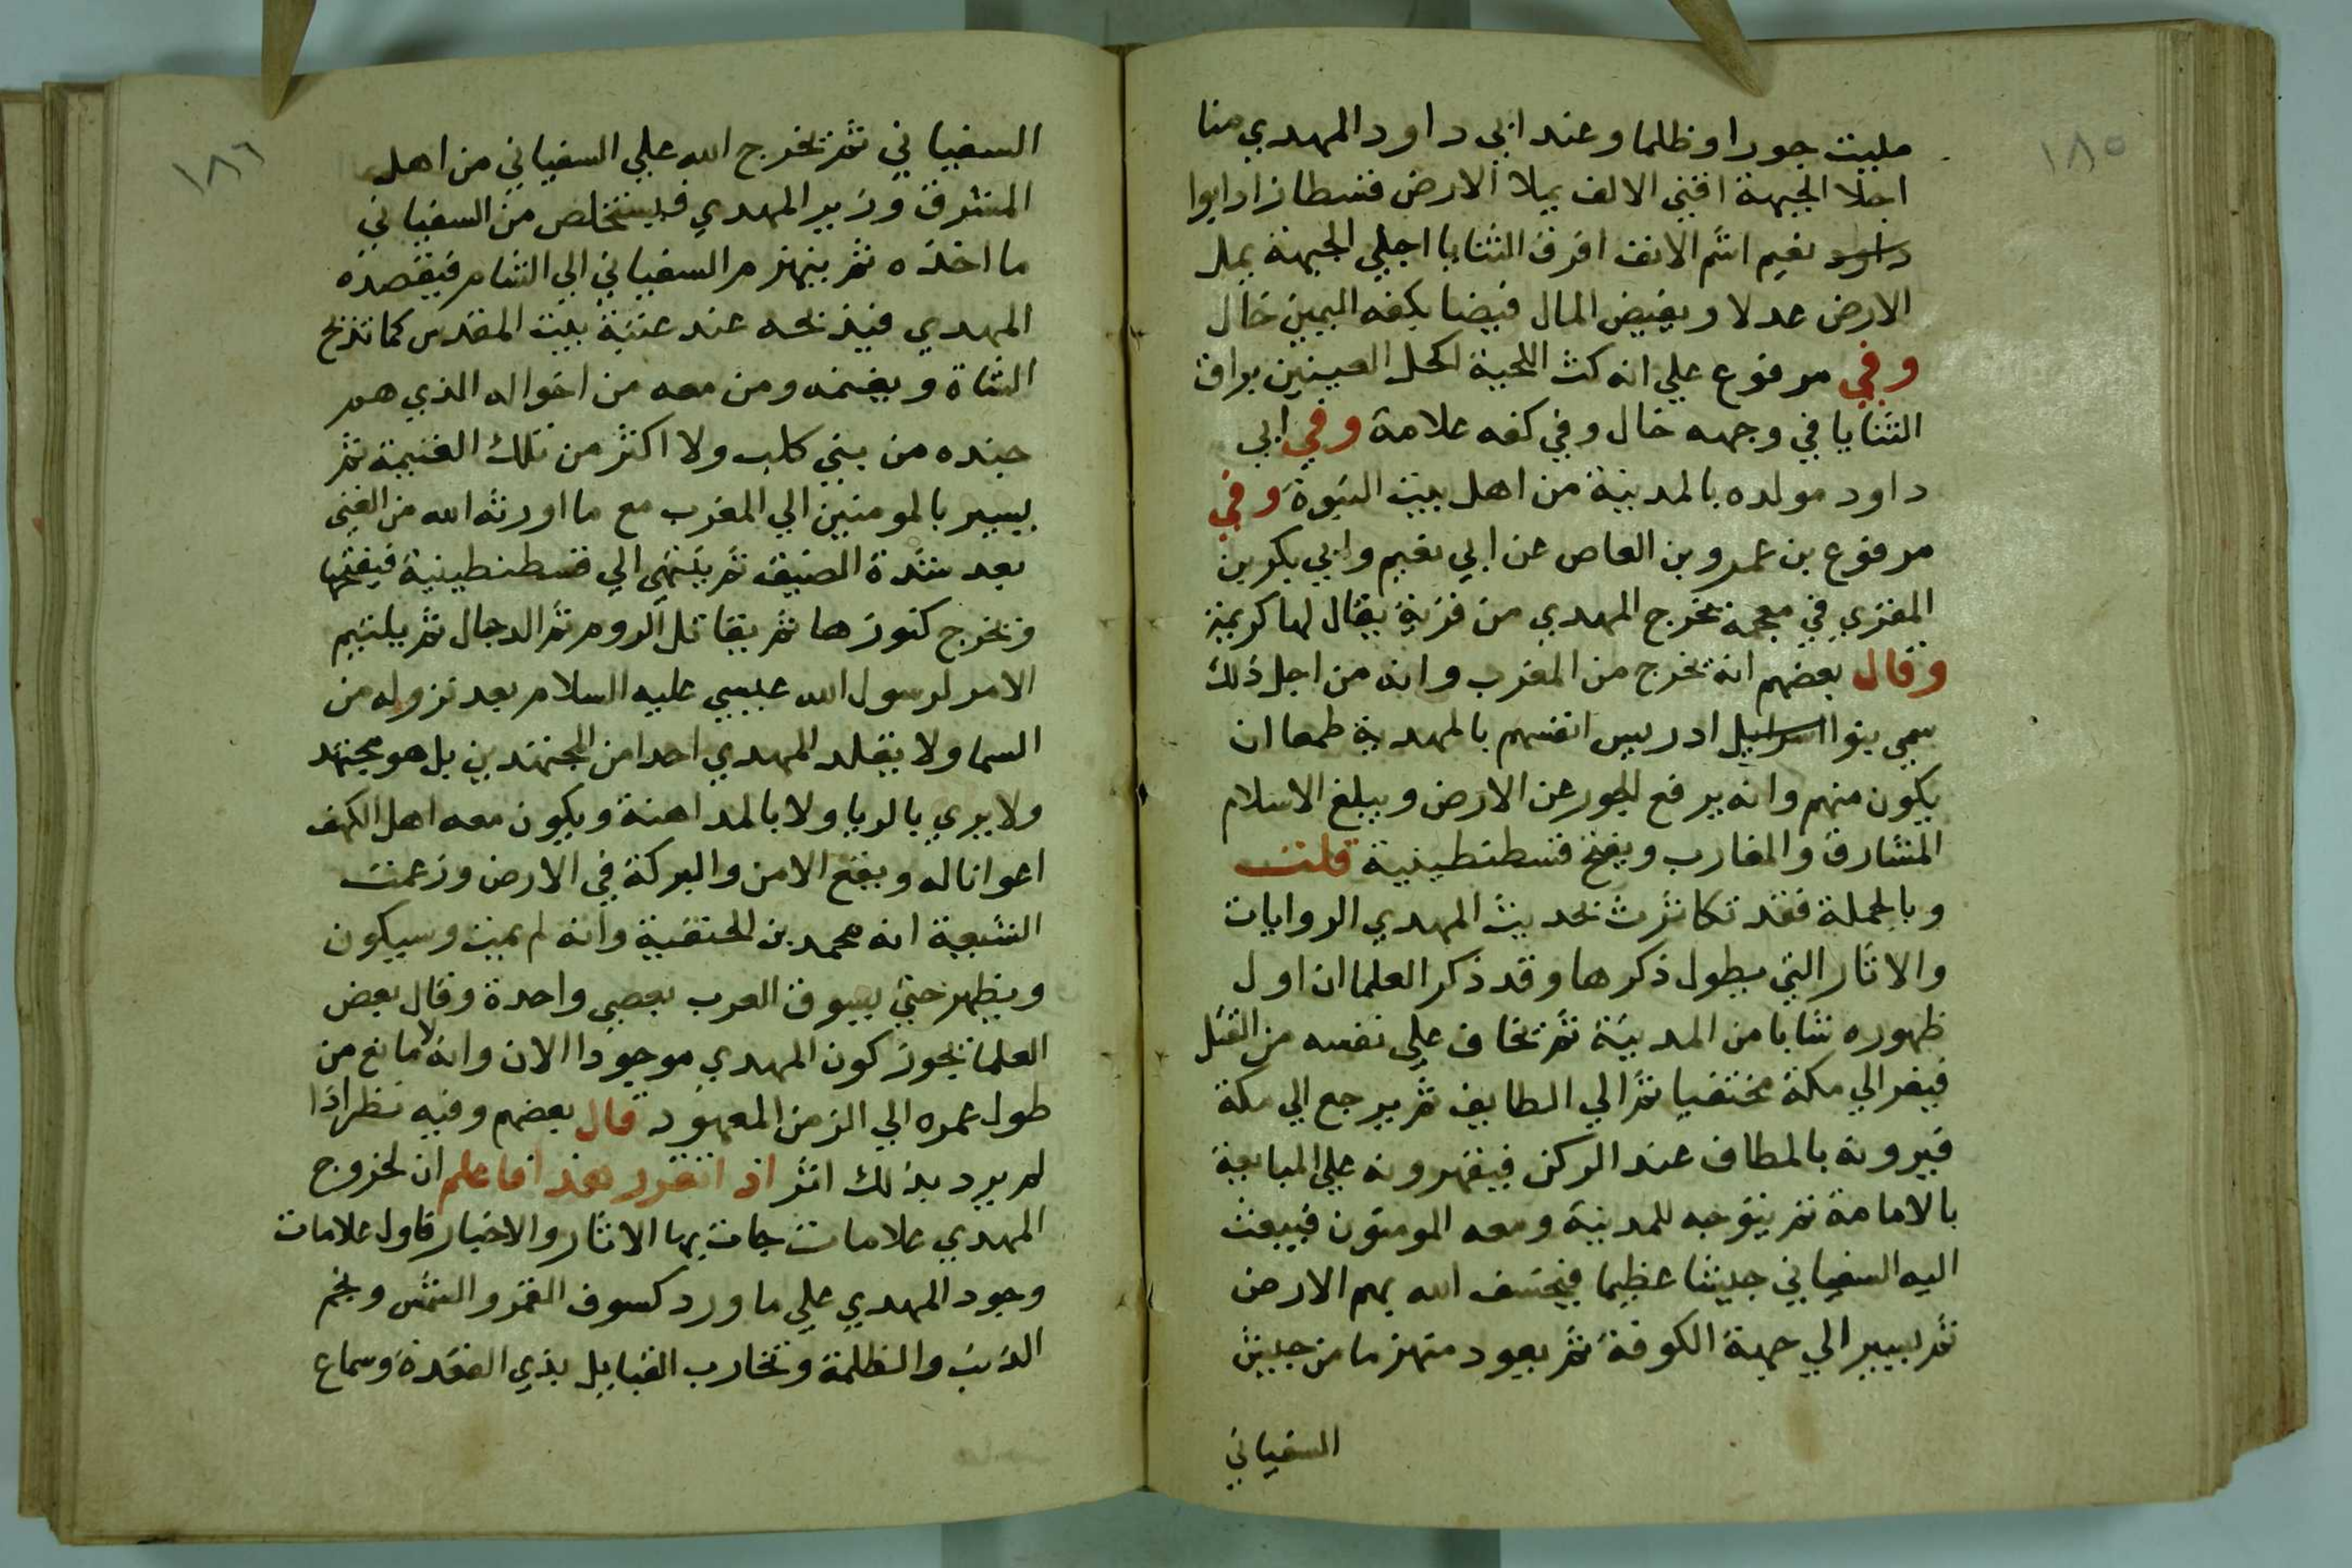 ١٨٥
مليت جورا وظلما وعند ابي داود المهدي منا
اجلا الجبهة اقني الالف يملا الارض قسطا زاد ابوا
داود نعيم اشم الانف افرق الثنايا اجلي الجبهة يملا
الارض عدلا ويفيض المال فيضا بكفه اليمين خال
وفي مرفوع علي انه كث اللحية اكحل العينين براق
الثنايا في وجهه خال وفي كفه علامة وفي ابي
داود مولده بالمدينة من اهل بيت النبوة وفي
مرفوع بن عمرو بن العاص عن ابي نعيم وابي بكر بن
المقري في معجمه يخرج المهدي من قرية يقال لها كريمة
وقال بعضهم انه يخرج من المغرب وانه من اجل ذلك
سمي بنوا اسرائيل ادريس انفسهم بالمهدية طمعا ان
يكون منهم وانه يرفع الجور عن الارض ويبلغ الاسلام
المشارق والمغارب ويفتح قسطنطينية قلت
وبالجملة فقد تكاثرت بحديث المهدي الروايات
والاثار التي يطول ذكرها وقد ذكر العلما ان اول
ظهوره شابا من المدينة ثم يخاف علي نفسه من القتل
فيفر الي مكة مختفيا ثم الي الطايف ثم يرجع الي مكة
فيرونه بالمطاف عند الركن فيقهرونه علي المبايعة
بالامامة ثم يتوجه للمدينة ومعه المومنون فيبعث
اليه السفياني جيشا عظيما فيخسف الله بهم الارض
ثم يسير الي جهة الكوفة ثم يعود منهزما من جيش
السفياني
١٨٦
السفياني ثم يخرج الله علي السفياني من اهل
المشرق وزير المهدي فيستخلص من السفياني
ما اخذه ثم ينهزم السفياني الي الشام فيقصده
المهدي فيذبحه عند عتبة بيت المقدس كما تذبح
الشاة ويغنمه ومن معه من اخواله الذي هم
جنده من بني كلب ولا اكثر من تلك الغنيمة ثم
يسير بالمومنين الي المغرب مع ما اورثه الله من الغني
بعد شدة الضيق ثم ينتهي الي قسطنطينية فيفتحها
وتخرج كنوزها ثم يقاتل الروم ثم الدجال ثم يلتيم
الامر لرسول الله عيسي عليه السلام بعد نزوله من
السما ولا يقلد المهدي احدا من المجتهدين بل هو مجتهد
ولا يري بالريا ولا بالمداهنة ويكون معه اهل الكهف
اعوانا له ويقع الامن والبركة في الارض وزعمت
الشيعة انه محمد بن الحنفية وانه لم يمت وسيكون
ويظهر حتي يسوق العرب بعصي واحدة وقال بعض
العلما يجوز كون المهدي موجودا الان وانه لا مانع من
طول عمره الي الزمن المعهود قال بعضهم وفيه نظر اذا
لم يرد بذلك اثر اذ اتقرر هذا فاعلم ان لخروج
المهدي علامات جات بها الاثار والاخبار فاول علامات
وجود المهدي علي ما ورد كسوف القمر والشمس ونجم
الذنب والظلمة وتحارب القبايل بذي القعدة وسماع